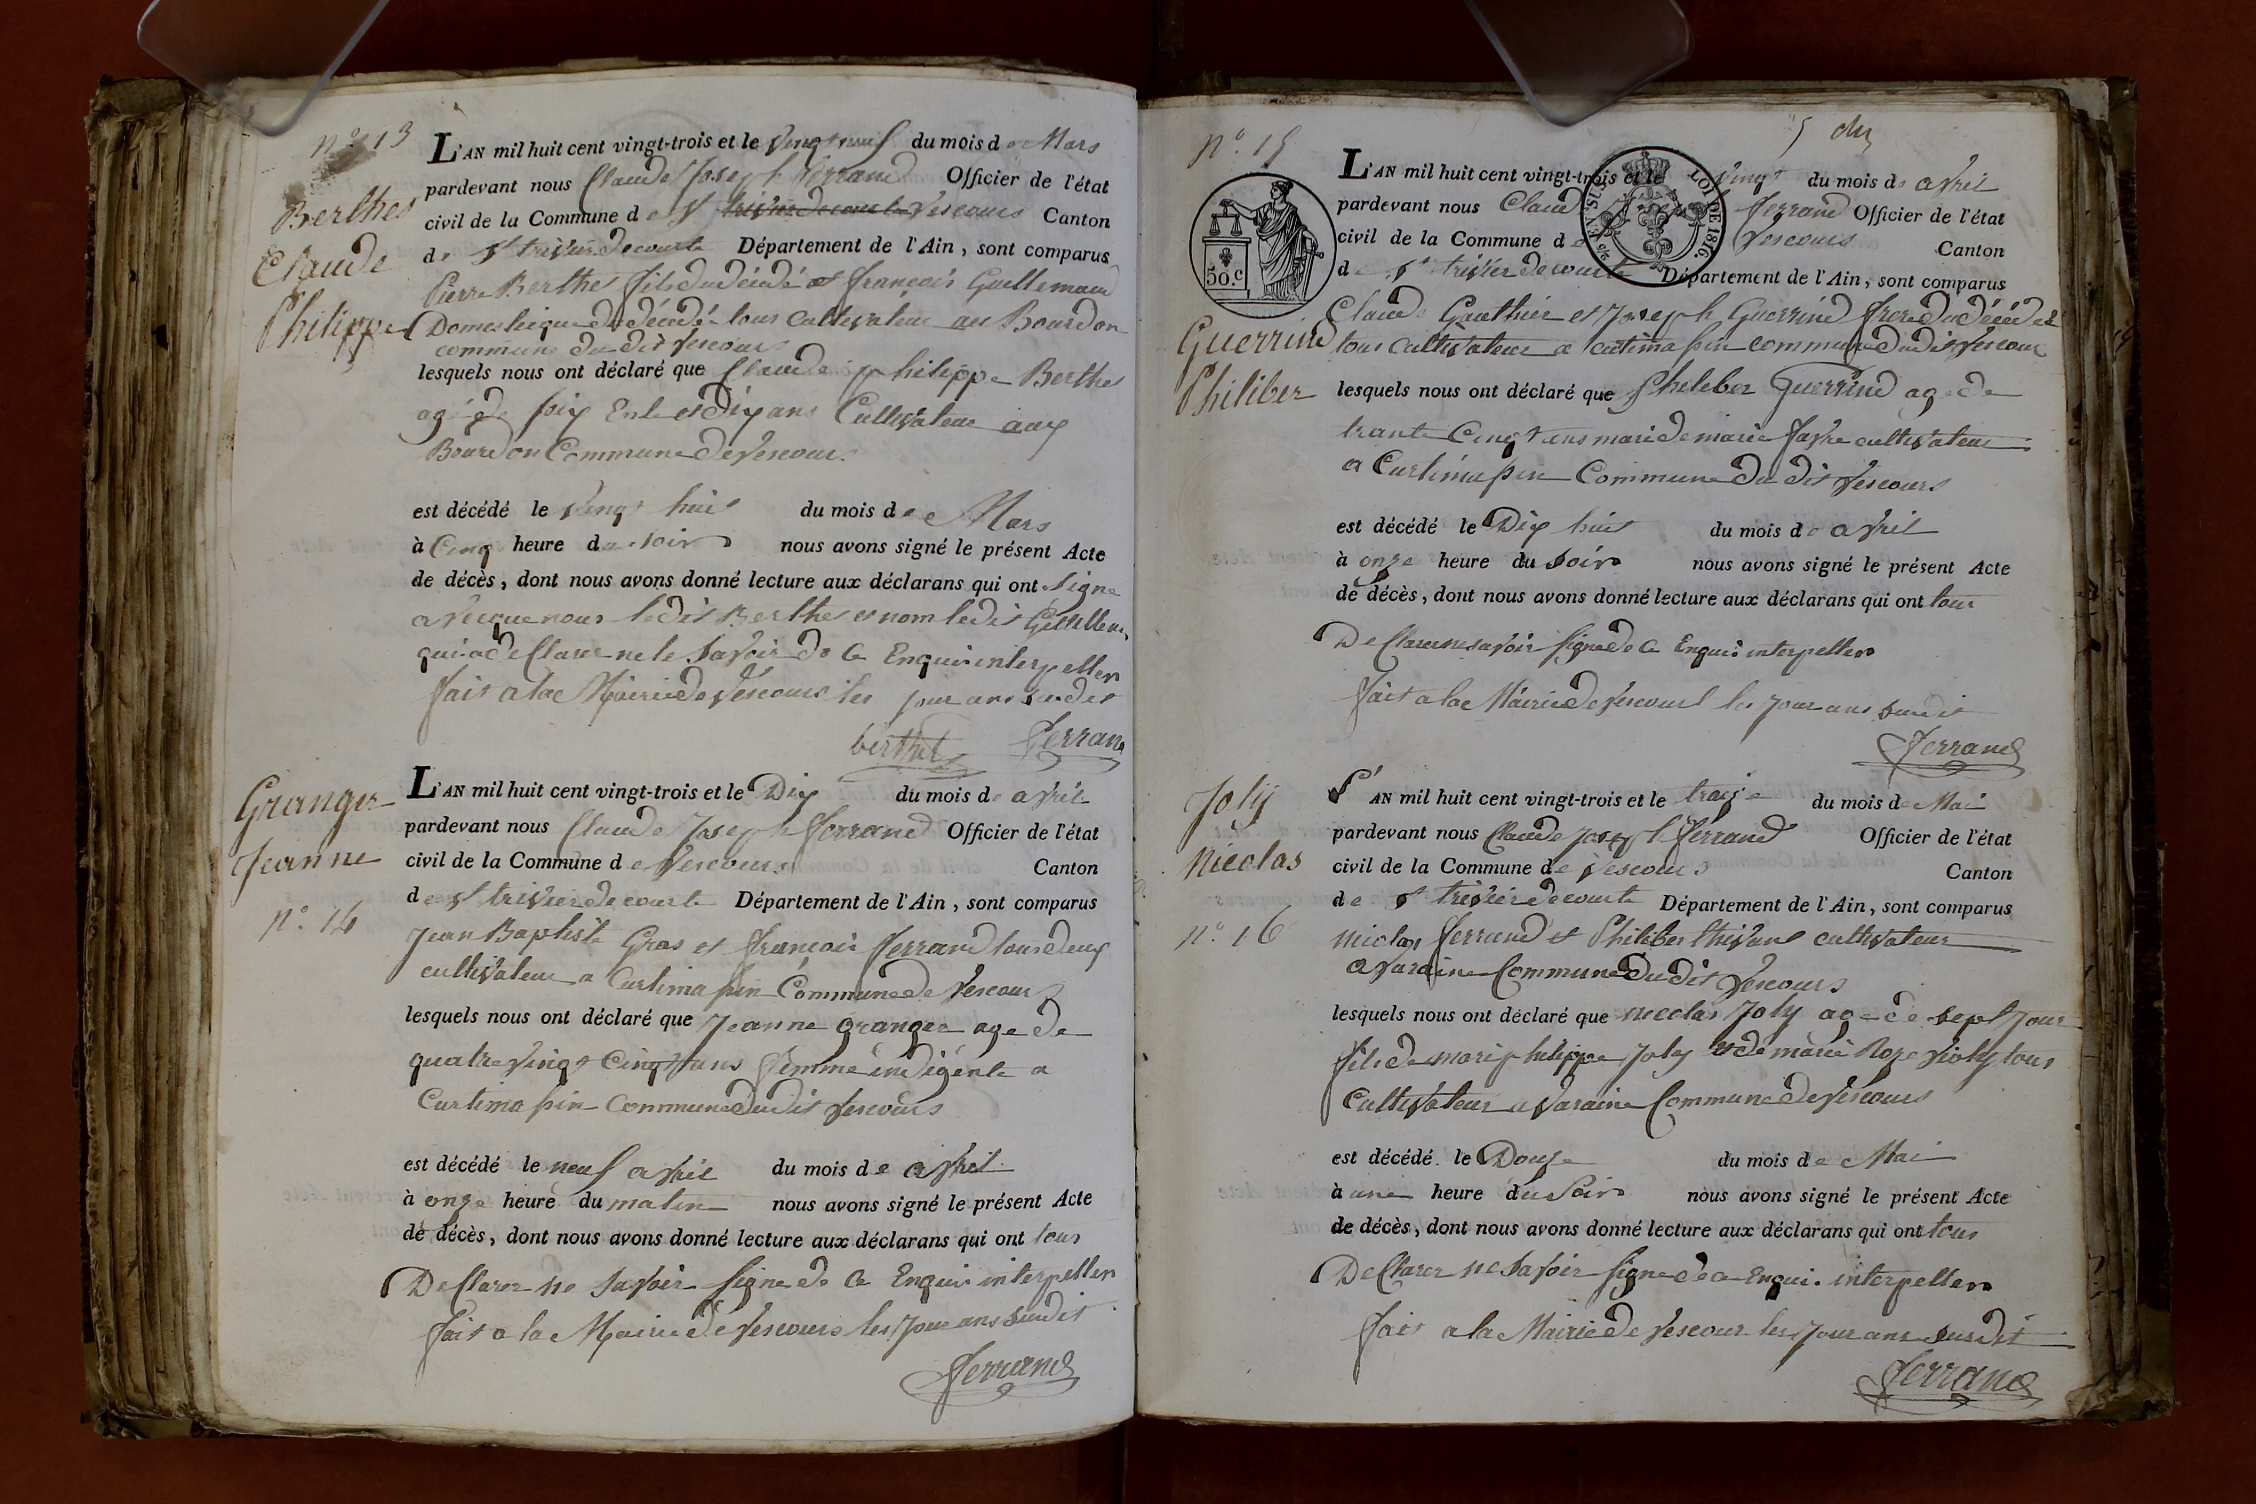 n.° 13
Berthet
Claude
Philippe
L'AN mil huit cent vingt-trois et le vingt neuf du mois de Mars
pardevant nous Claude Joseph ferrand Officier de l'état
civil de la Commune de St trivier de courte Vescours Canton
de St trivier de courte Département de l'Ain, sont comparus
Pierre Berthet fils du décédé et françois Guillemaud
Domestique du décédé tous cultivateur au Bourdon
commune du dit Vescours
lesquels nous ont déclaré que Claude philippe Berthet
agé de soix Ente et Dix ans Cultivateur aux
Bourdon Commune de Vescours
est décédé le vingt huit du mois de Mars
à Cinq heure du soir nous avons signé le présent Acte
de décès, dont nous avons donné lecture aux déclarans qui ont signe
avecque nous le dit Berthet et nom le dit
qui a deClarer ne le Savoir de Ce Enquis interpeller
fait a lae Mairie de Vescours les jour ans susdit
berthet ferrand
Granger
Jeanne
n.° 14
L'AN mil huit cent vingt-trois et le Dix du mois de avril
pardevant nous Claude Joseph ferrand Officier de l'état
civil de la Commune de Vescours Canton
de St trivier de courte Département de l'Ain, sont comparus
Jean Baptiste Gras et françois ferrand tous deux
cultivateur a Curtimapin Commune de Vescours
lesquels nous ont déclaré que Jeanne granger age de
quatre vingt Cinq ans femme indigente a
Curtimapin Commune du dit Vescours
est décédé le neuf avril du mois de avril
à onze heure du matin nous avons signé le présent Acte
de décès, dont nous avons donné lecture aux déclarans qui ont tous
DeClarer ne Savoir signe de Ce Enquis interpeller
fait a la Mairie de Vescours les jour ans susdit
ferrand
n.° 15
5
Guerrind
Philiber
50.c
LOI DE 1816.
L'AN mil huit cent vingt-trois et le vingt du mois de avril
pardevant nous Claud ferrand Officier de l'état
civil de la Commune de Vescours Canton
de St trivier de courte Département de l'Ain, sont comparus
Claude Gauthier et Joseph Guerrind frere du décédé
tous cultivateur a cutimapin commune du dit Vescours
lesquels nous ont déclaré que Pheleber Guerrind age de
trante Cinq ans mari de marie favre cultivateur
a Curtimapin Commune du dit Vescours
est décédé le Dix huit du mois de avril
à onze heure du soir nous avons signé le présent Acte
de décès, dont nous avons donné lecture aux déclarans qui ont tous
DeClarer ne savoir signe de Ce Enquis interpeller
fait a lae Mairie de Vescours les jour ans susdit
ferrand
Joly
Nicolas
n.° 16
L'AN mil huit cent vingt-trois et le traize du mois de Mai
pardevant nous Claude Joseph ferrand Officier de l'état
civil de la Commune de Vescours Canton
de St trivier de courte Département de l'Ain, sont comparus
nicolas ferrand et Philiber thivant cultivateur
a varaine Commune du dit Vescours
lesquels nous ont déclaré que nicolas Joly age de sept jour
fils de mari philippe Joly et de marie Roze violy tous
Cultivateur a varaine Commune de Vescours
est décédé le Douze du mois de Mai
à une heure du Soir nous avons signé le présent Acte
de décès, dont nous avons donné lecture aux déclarans qui ont tous
DeClarer ne Savoir signe de Ce Enquis interpeller
fait a la Mairie de Vescour les jour ans susdit
ferrand